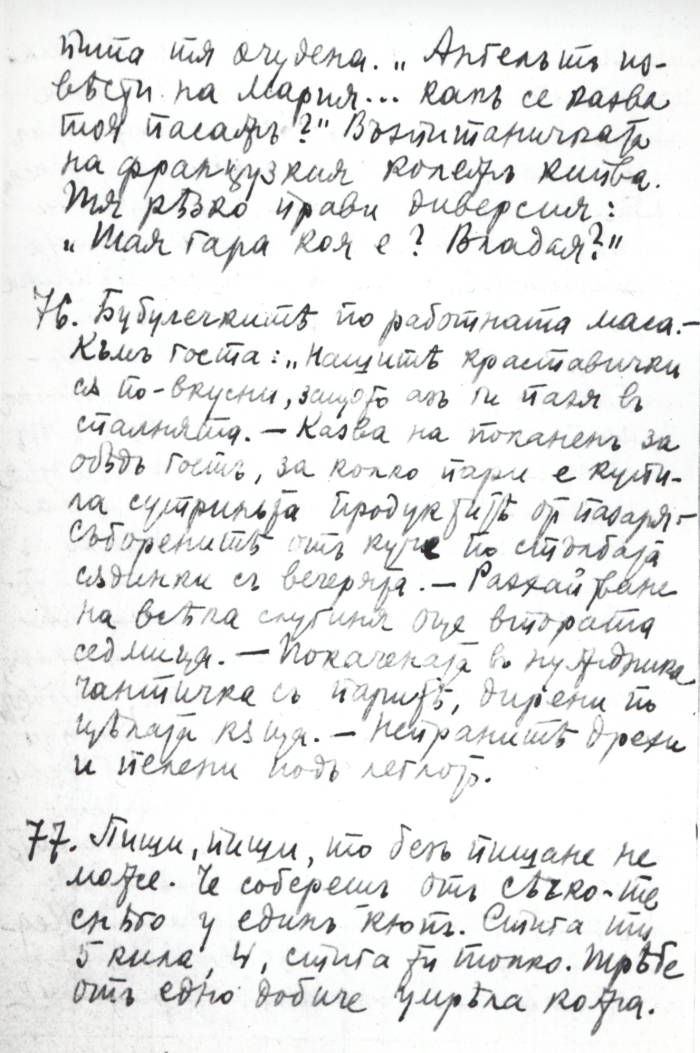 пита тя очудена. „Ангелътъ из-
вѣсти на Мария... какъ се казва
тоя пасажъ?" Възпитаничката
на французкия колежъ кипва.
Тя рѣзко прави диверсия:
„Тая гара коя е? Владая?"
76. Бубулечкитѣ по работната маса.—
Къмъ госта: „Нашитѣ краставички
сѫ по-вкусни, защото азъ ги пазя въ
спалнята. — Казва на поканенъ за
обѣдъ гость, за колко пари е купи-
ла сутриньта продуктитѣ отъ пазаря.—
Съборенитѣ отъ куче по стълбата
сѫдинки съ вечерята. — Разхайтване
на всѣка слугиня още втората
седмица. — Покачената въ нужника
чантичка съ паритѣ, дирени по
цѣлата кѫща. — Непранитѣ дрехи
и пелени подъ леглото.
77. Пищи, пищи, то безъ пищане не
може. Че соберешъ отъ сѣчко-те
снѣго у единъ кюпъ. Стига ти
5 кила, 4, стига ти толко. Трѣбе
отъ едно добиче умрѣла кожа.